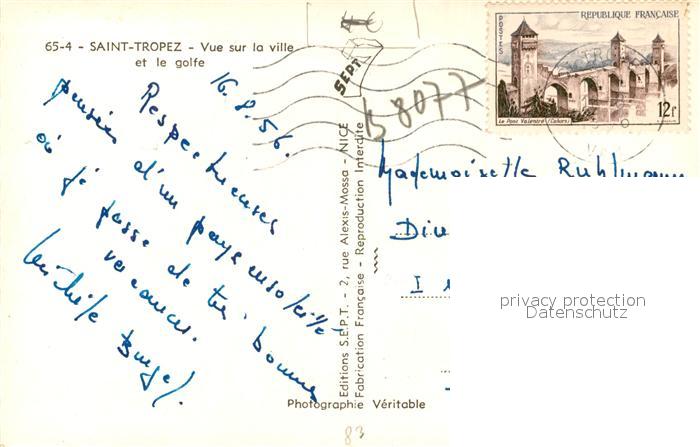 65-4 - SAINT-TROPEZ - Vue sur la ville
et le golfe
16.8.56.
Respectueuses
pensées d'un pays ensoleillé
où je passe de très bonnes
vacances.
Michèle
SEPT
4€
B 8077
Editions S.E.P.T. - 2, rue Alexis-Mossa - NICE
Fabrication Française - Reproduction Interdite
Photographie Véritable
83
POSTES
RÉPUBLIQUE FRANÇAISE
Le Pont Valentré (Cahors)
12F
Mademoiselle Ruhlmann
Div
I
privacy protection
Datenschutz